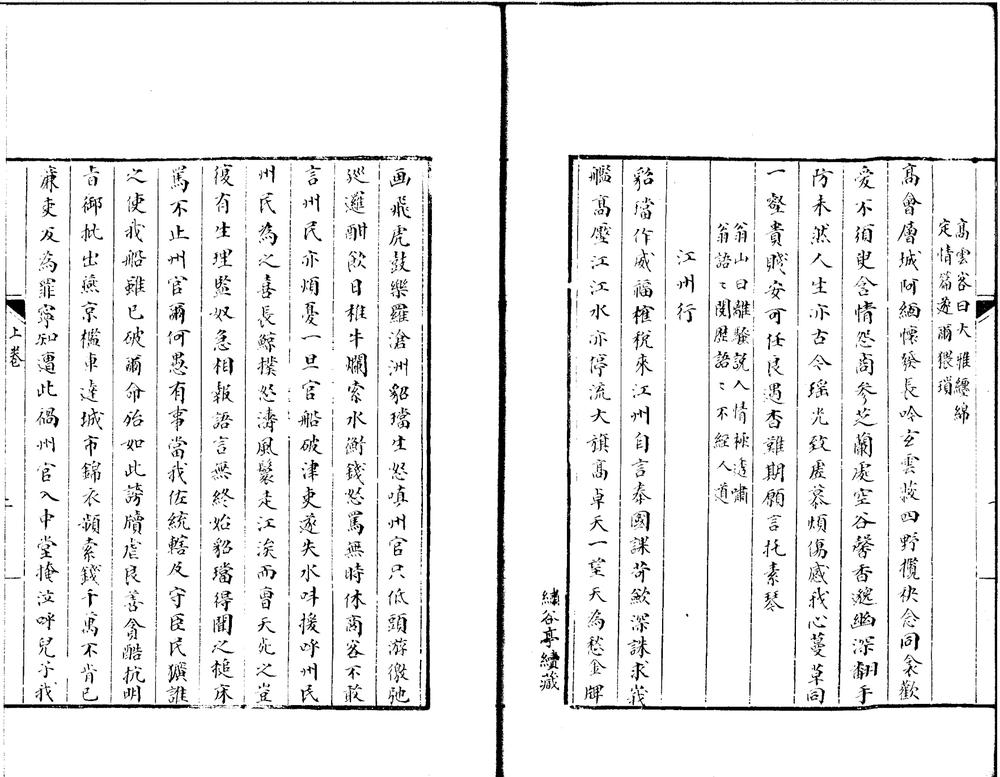 高雲客曰大雅纏綿
定情篇遜爾猥瑣
高會層城阿緬懷發長吟玄雲被四野攬袂念同衾歡
愛不須臾含情怨商參芝蘭處空谷馨香邈幽深翻手
防未然人生亦古今瑶光致虛慕煩傷感我心蔓草同
一壑貴賤安可任良遇杳難期願言托素琴
翁山曰離騷說人情極透嘯
翁語〻閱歷語〻不經人道
江州行
貂璫作威福榷稅來江州自言奉國課苛歛深誅求峩
艦高壓江江水亦停流大旗高卓天一望天為愁金牌
繡谷亭續藏
画飛虎鼓樂羅滄洲貂璫生怒嗔州官只低頭游徼馳
廵邏酣飲日椎牛爛索水衡錢怒罵無時休商客不敢
言州民亦煩憂一旦官船破津吏遂失水呌援呼州民
州民為之喜長鯨撲怒濤風鬟走江涘而曹天死之豈
復有生理監奴急相報語言無終始貂璫得聞之搥床
罵不止州官爾何愚有事當我佐統轄及守臣民獷誰
之使我船雖已破爾命殆如此謗牘虐良善貪酷抗明
旨御批出燕京檻車達城市錦衣頻索錢千萬不肯已
廉吏反為罪寧知遭此禍州官入中堂掩泣呼兒子我
上卷